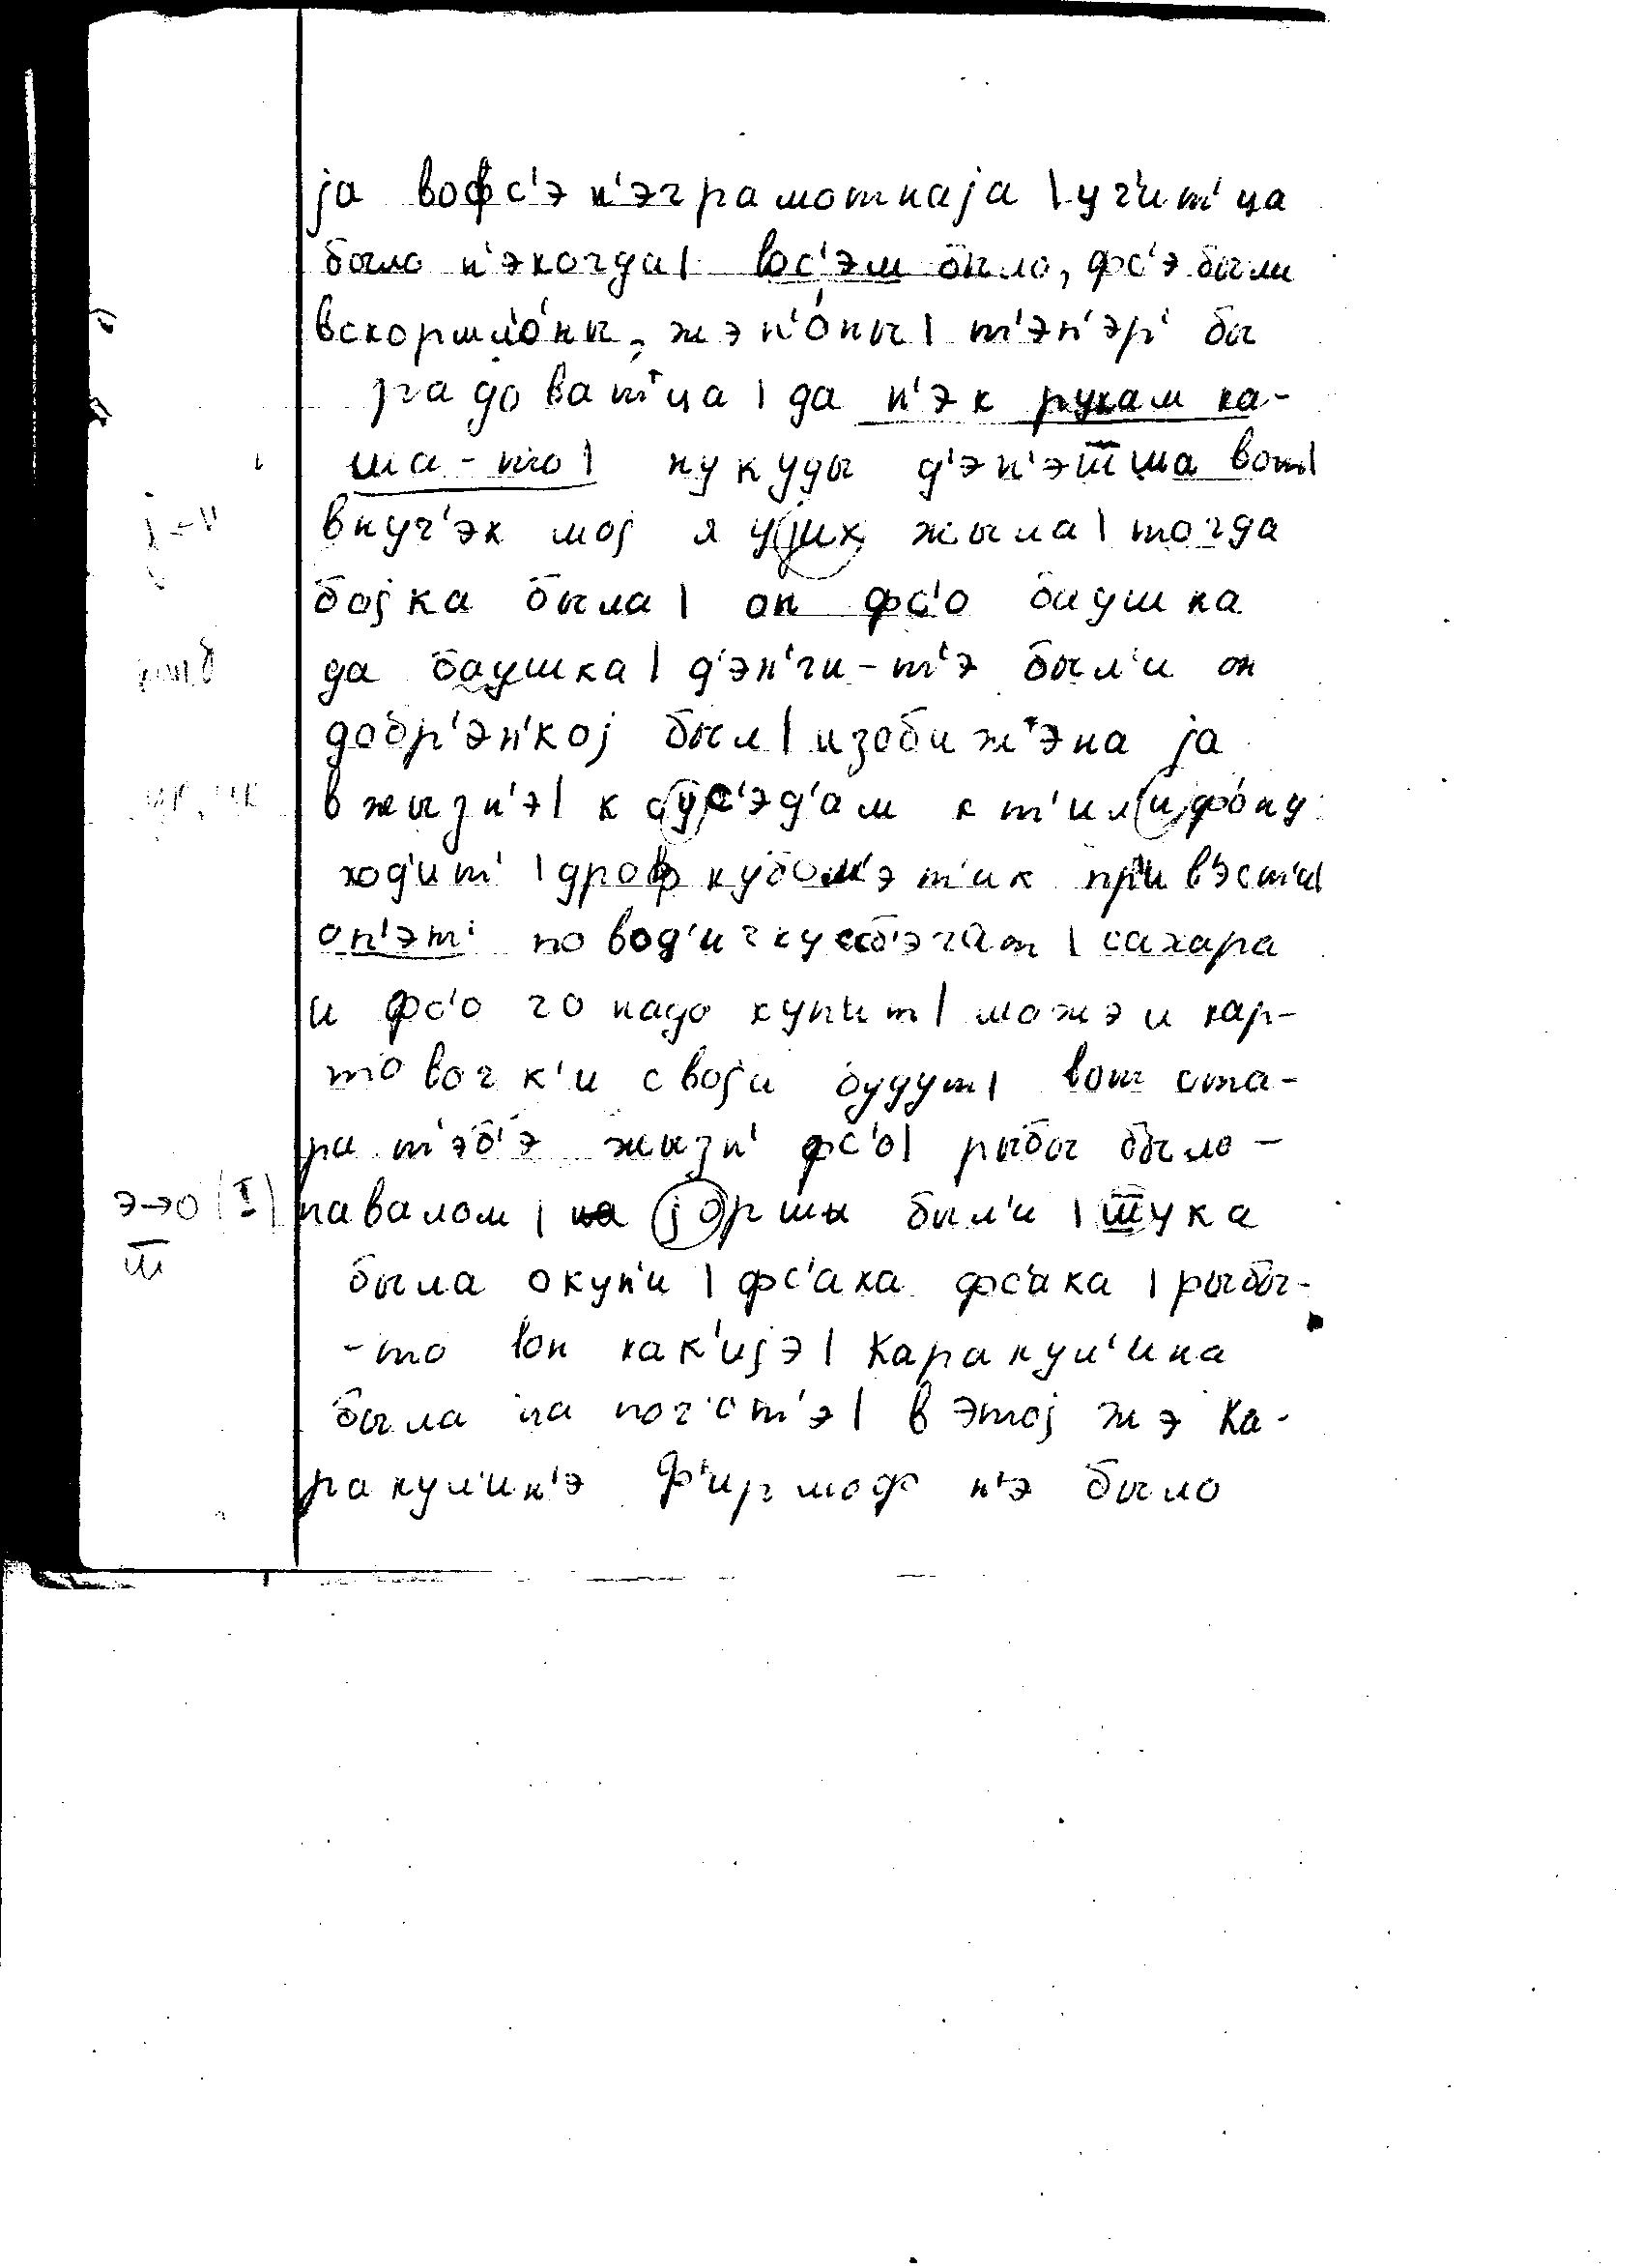 ја вофс'э н'эграмотнаја | уч'ит'ца
было н'экогда | вос'эм было, фс'э были
вскормл'о́ны, жэн'о́ны | т'эп'эр' бы
радоват'ца | да н'э к рукам ка-
ша-то | ну куды д'эн'эш̅ша вот |
внуч'эк мој я у јих жыла | тогда
бојка была | он фс'о баушка
да баушка | д'эн'ги-т'э был'и он
добр'эн'кој был | изобиж'эна ја
в жызн'э | к сус'эд'ам к т'ил'ифону
ход'ит' | дроф кубом'эт'ик прив'эст'и |
оп'эт' по вод'ичку сб'эгат | сахара
и фс'о го надо купит | можэ и кар-
товочк'и своји будут | вот ста-
ри т'эб'э жызн' фс'о | рыбы было -
э→о (I) навалом | јоршы был'и | ш̅ука
ш̅
была окун'и | фс'ака фс'ака | рыбы-
-то вон как'ијэ | Каракул'ина
была на поч'от'э | в этој жэ Ка-
ракул'ин'э ф'ирмоф н'э было